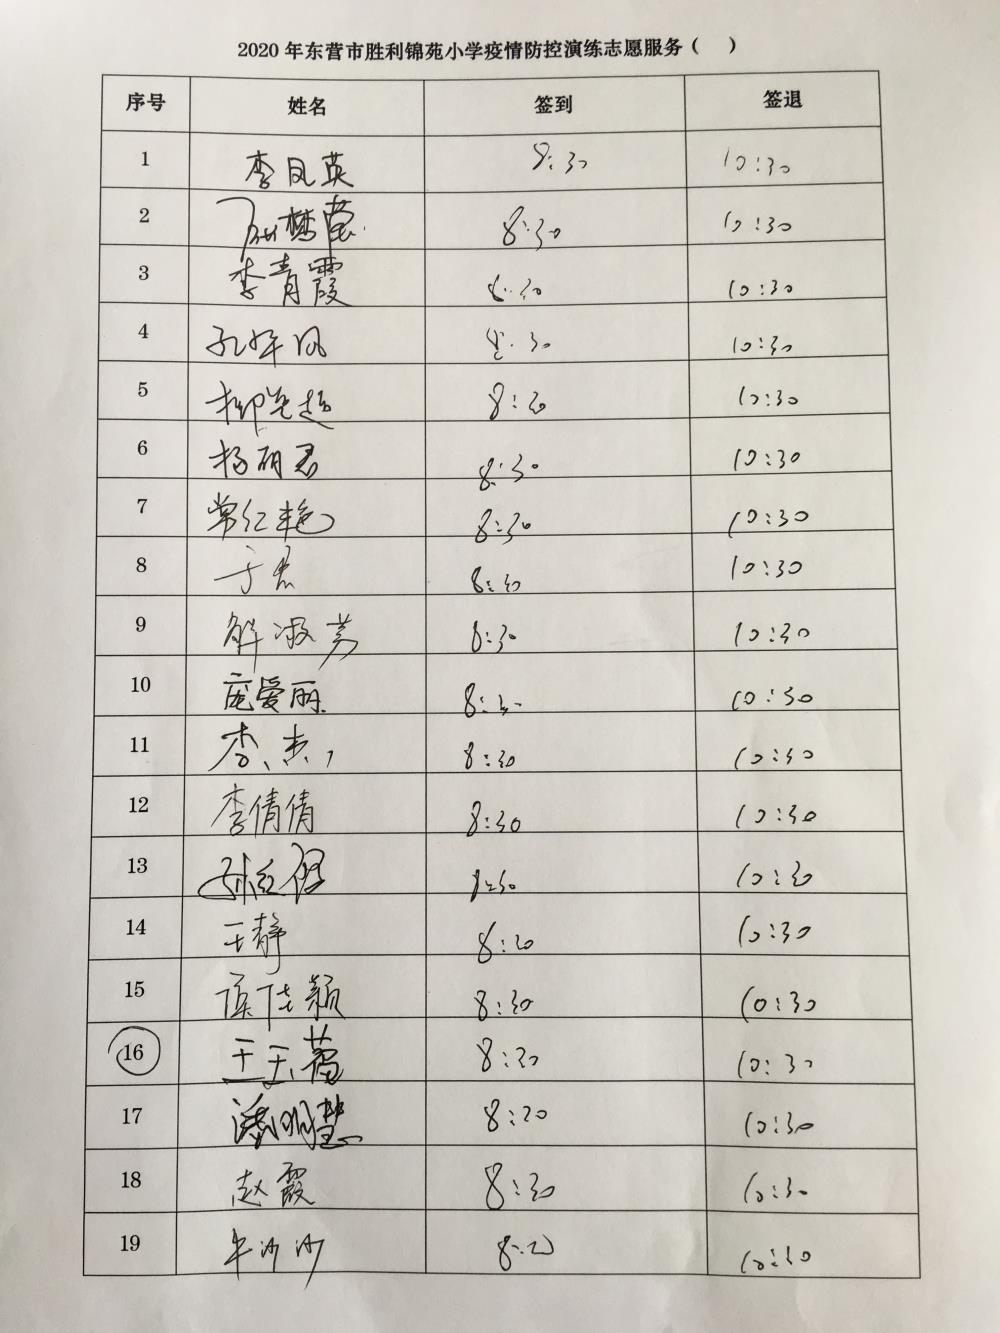 2020 年东营市胜利锦苑小学疫情防控演练志愿服务（ ）
序号 姓名 签到 签退
1 李凤英 8:30 10:30
2 梦莹 8:30 10:30
3 李青霞 8:30 10:30
4 孔 凤 8:30 10:30
5 柳 超 8:30 10:30
6 杨丽君 8:30 10:30
7 常红艳 8:30 10:30
8 于君 8:30 10:30
9 解淑芳 8:30 10:30
10 庞爱丽 8:30 10:30
11 李杰 8:30 10:30
12 李倩倩 8:30 10:30
13 孙红 8:30 10:30
14 王静 8:20 10:30
15 佳颖 8:30 10:30
16 王玉 8:20 10:30
17 潘明慧 8:20 10:30
18 赵霞 8:30 10:30
19 牛沙沙 8:20 10:30